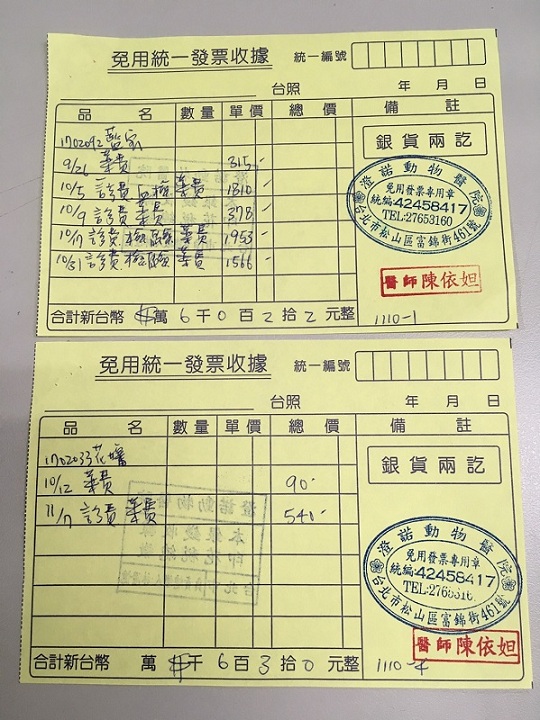 免用統一發票收據 統一編號
台照 年 月 日
品 名 數量 單價 總 價 備 註
1702092
銀貨兩訖
9/26 藥費 315-
10/5 診費 藥費 1810-
10/9 診費 藥費 378-
10/17 診費 檢驗 藥費 1953-
10/31 診費 檢驗 藥費 1566-
澄諾動物醫院
免用發票專用章
統編:42458417
TEL:27653160
台北市松山區富錦街461號
醫師 陳依妲
合計新台幣 萬 6 千 0 百 2 拾 2 元整 1110-1
免用統一發票收據 統一編號
台照 年 月 日
品 名 數量 單價 總 價 備 註
銀貨兩訖
10/12 藥費 90-
11/7 診費 藥費 540-
澄諾動物醫院
免用發票專用章
統編:42458417
台北市松山區富錦街461號
醫師 陳依妲
合計新台幣 萬 千 6 百 3 拾 0 元整 1110-4